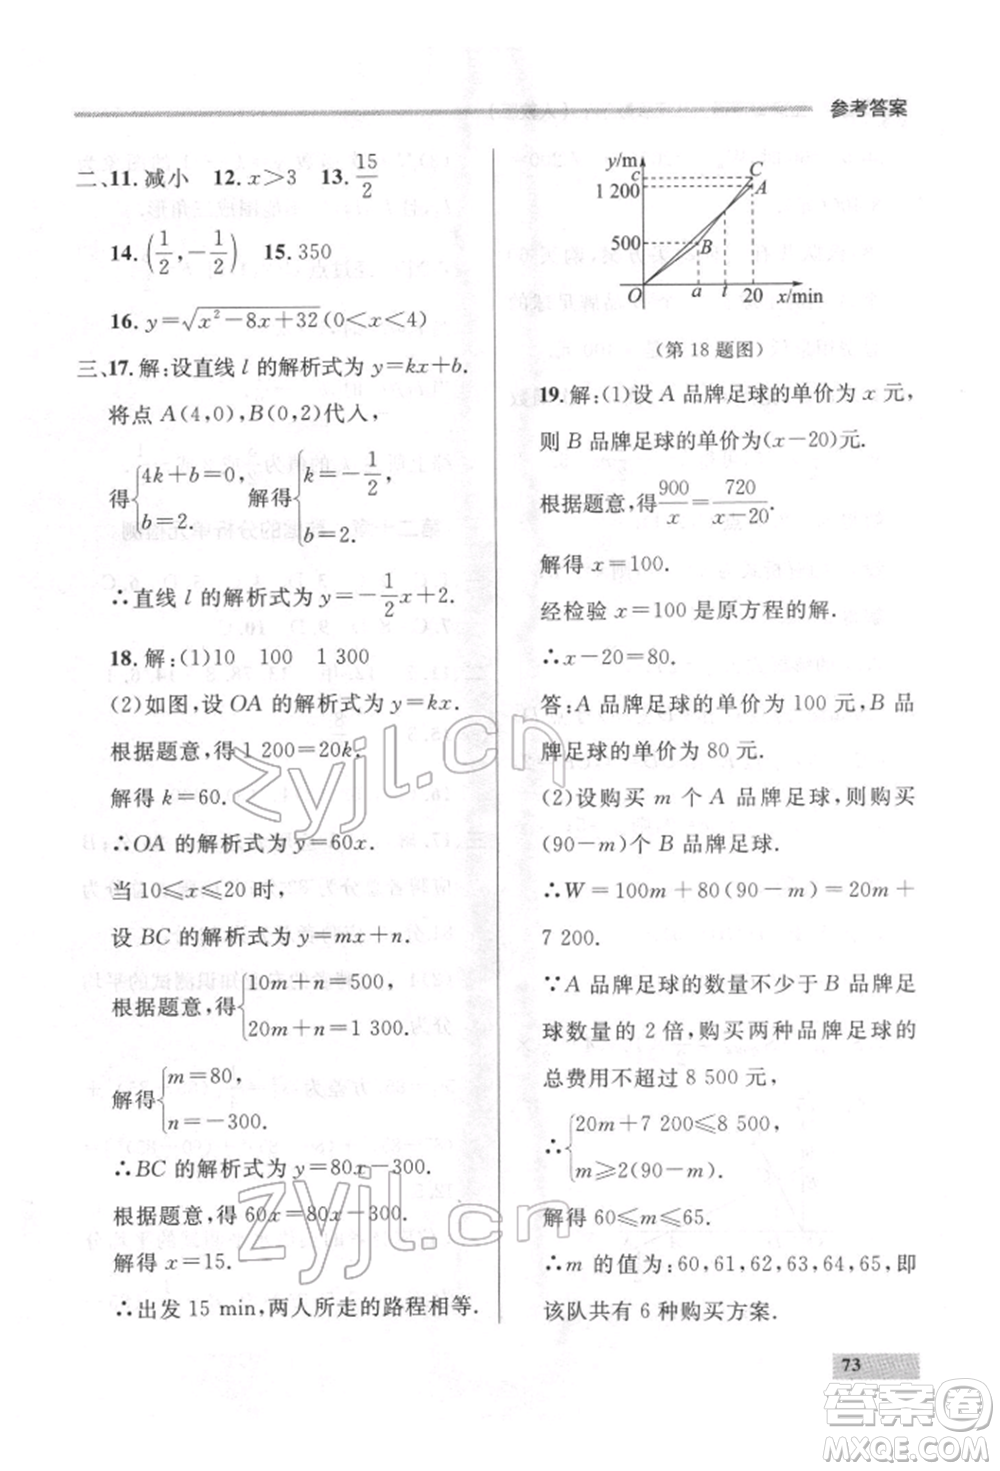 参考答案
二、11.减小 12. x>3 13. 15/2
14. (1/2, -1/2) 15. 350
16. y=√(x²-8x+32)(0<x<4)
三、17.解:设直线 l 的解析式为 y=kx+b.
将点 A(4,0),B(0,2)代人,
得{4k+b=0, b=2. 解得{k=-1/2, b=2.
∴直线 l 的解析式为 y=-1/2x+2.
18.解:(1)10 100 1 300
(2)如图,设 OA 的解析式为 y=kx.
根据题意,得 1 200=20k.
解得 k=60.
∴OA 的解析式为 y=60x.
当 10≤x≤20 时,
设 BC 的解析式为 y=mx+n.
根据题意,得{10m+n=500, 20m+n=1 300.
解得{m=80, n=-300.
∴BC 的解析式为 y=80x-300.
根据题意,得 60x=80x-300.
解得 x=15.
∴出发 15 min,两人所走的路程相等.
y/m
c
C
1 200
A
500
B
O
a
t
20
x/min
(第 18 题图)
19.解:(1)设 A 品牌足球的单价为 x 元,
则 B 品牌足球的单价为(x-20)元.
根据题意,得 900/x=720/(x-20).
解得 x=100.
经检验 x=100 是原方程的解.
∴x-20=80.
答:A 品牌足球的单价为 100 元,B 品
牌足球的单价为 80 元.
(2)设购买 m 个 A 品牌足球,则购买
(90-m)个 B 品牌足球.
∴W=100m+80(90-m)=20m+
7 200.
∵A 品牌足球的数量不少于 B 品牌足
球数量的 2 倍,购买两种品牌足球的
总费用不超过 8 500 元,
∴{20m+7 200≤8 500, m≥2(90-m).
解得 60≤m≤65.
∴m 的值为:60,61,62,63,64,65,即
该队共有 6 种购买方案.
73
zyjl.cn
zyjl.cn
答案圈
MXQE.COM